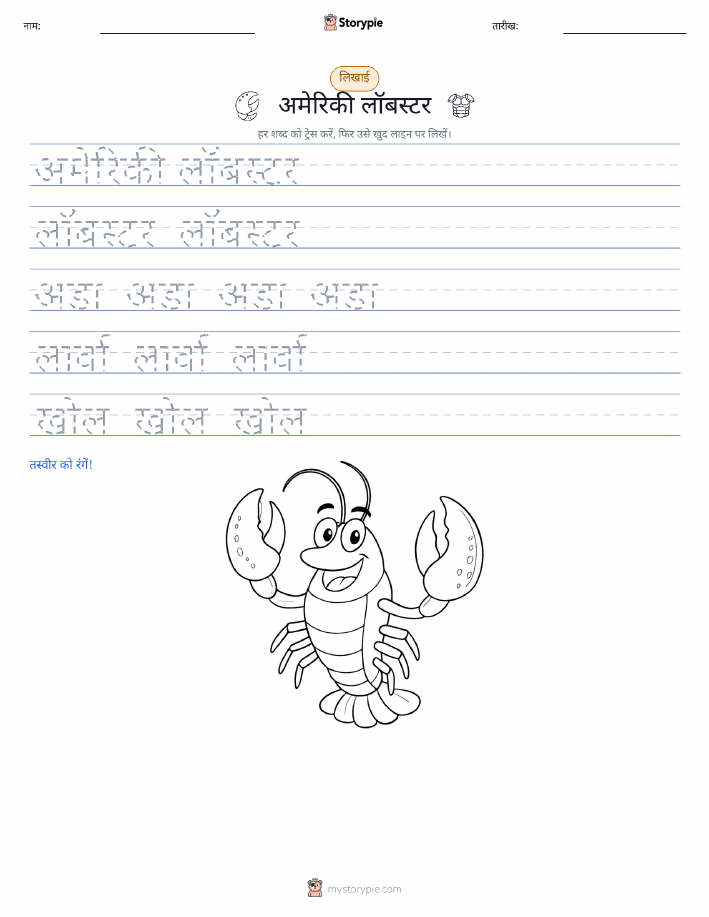 नाम:
Storypie
तारीख:
लिखाई
अमेरिकी लॉबस्टर
हर शब्द को ट्रेस करें, फिर उसे खुद लाइन पर लिखें।
अमेरिकी लॉबस्टर
लॉबस्टर लॉबस्टर
अंडा अंडा अंडा अंडा
लार्वा लार्वा लार्वा
खोल खोल खोल
तस्वीर को रंगें!
mystorypie.com